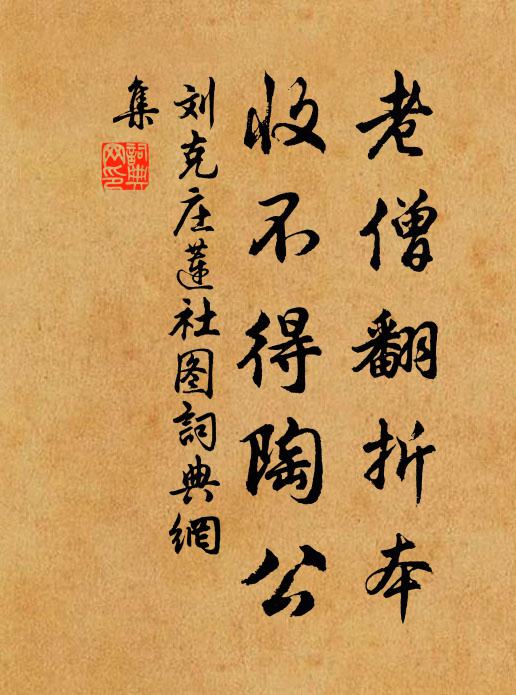 老僧翻折本
收不得陶公
刘克庄莲社图詞典網
集
詞典网印